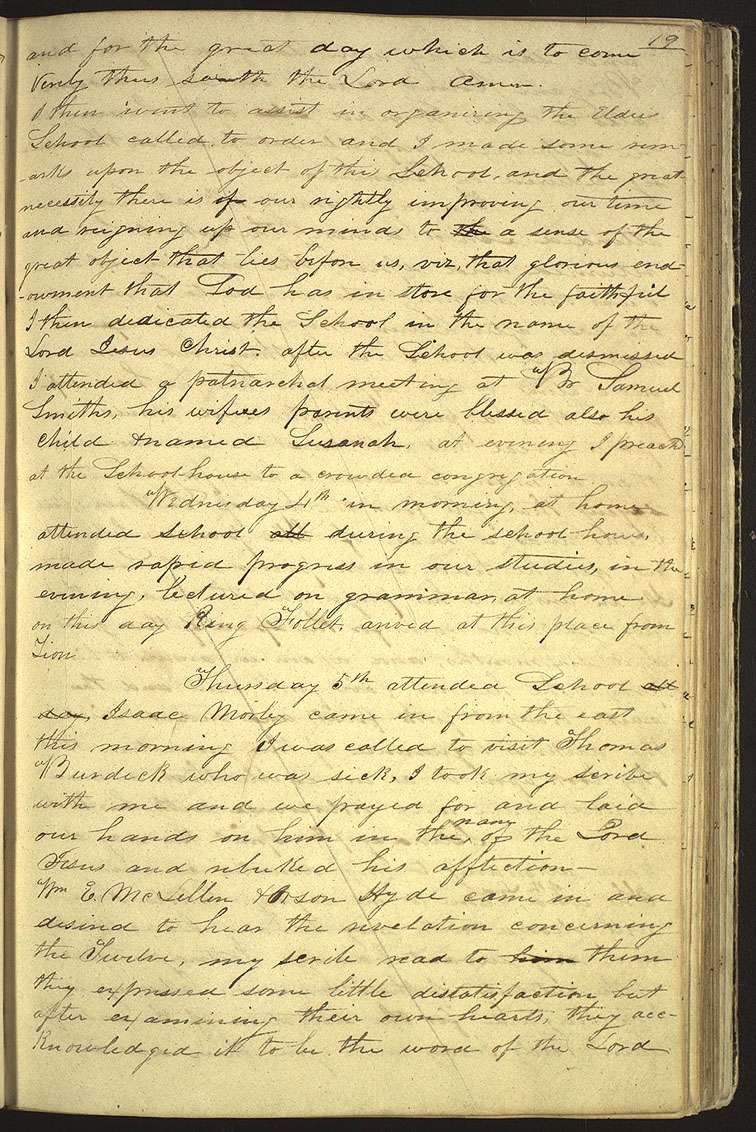 19
and for the great day which is to come
Verily thus saith the Lord Amen.
I then went to assist in organizing the Elders
School called to order and I made some rem-
-arks upon the object of this School, and the great
necessity there is of our rightly improving our time
and reigning up our minds to the a sense of the
great object that lies before us, viz, that glorious end-
-owment that God has in store for the faithful
I then dedicated the School in the name of the
Lord Jesus Christ. after the School was dismissed
I attended a patriarchal meeting at Br Samuel
Smiths, his wifees parents were blessed also his
child & named Susanah, at evening I preachd
at the School-house to a crowded congregation
Wednesday 4th in morning, at home
attended school all during the school hours,
made rapid progress in our studies, in the
evening, lectured on grammar, at home
on this day King Follet, arived at this place from
Zion
Thursday 5th attended School all
day, Isaac Morley came in from the east
this morning I was called to visit Thomas
Burdick who was sick, I took my scribe
with me and we prayed for and laid
our hands on him in the, name of the Lord
Jesus and rebuked his affliction—
Wm E. McLellen & Orson Hyde came in and
desired to hear the revelation concerning
the Twelve, my scribe read to him them
they expressed some little dissatisfaction but
after examining their own hearts, they acc-
knowledged it to be the word of the Lord